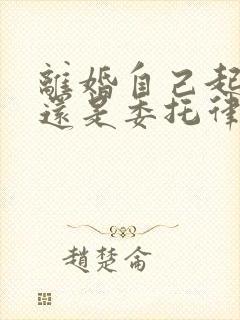 離婚自己起
還是委托律
趙楚侖